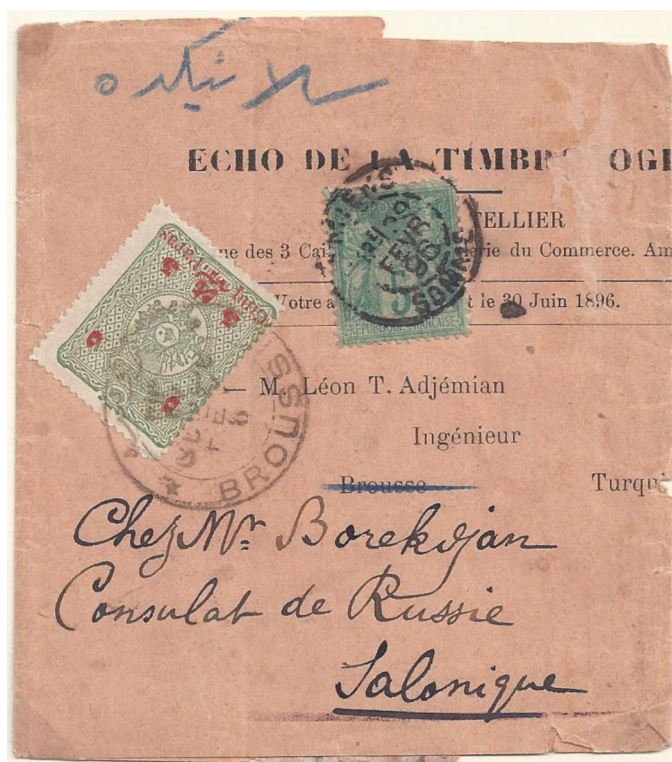 سلانيكده
ECHO DE LA TIMBR OGI
TELLIER
des 3 Cai rie du Commerce. Am
Votre a t le 30 Juin 1896.
AMIENS
FEVR
96
SOMME
5
REPUBLIQUE FRANÇAISE
Cinq
BROUSSE
— M. Léon T. Adjémian
Ingénieur
Brousse Turqui
Chez Mr Borekdjan
Consulat de Russie
Salonique